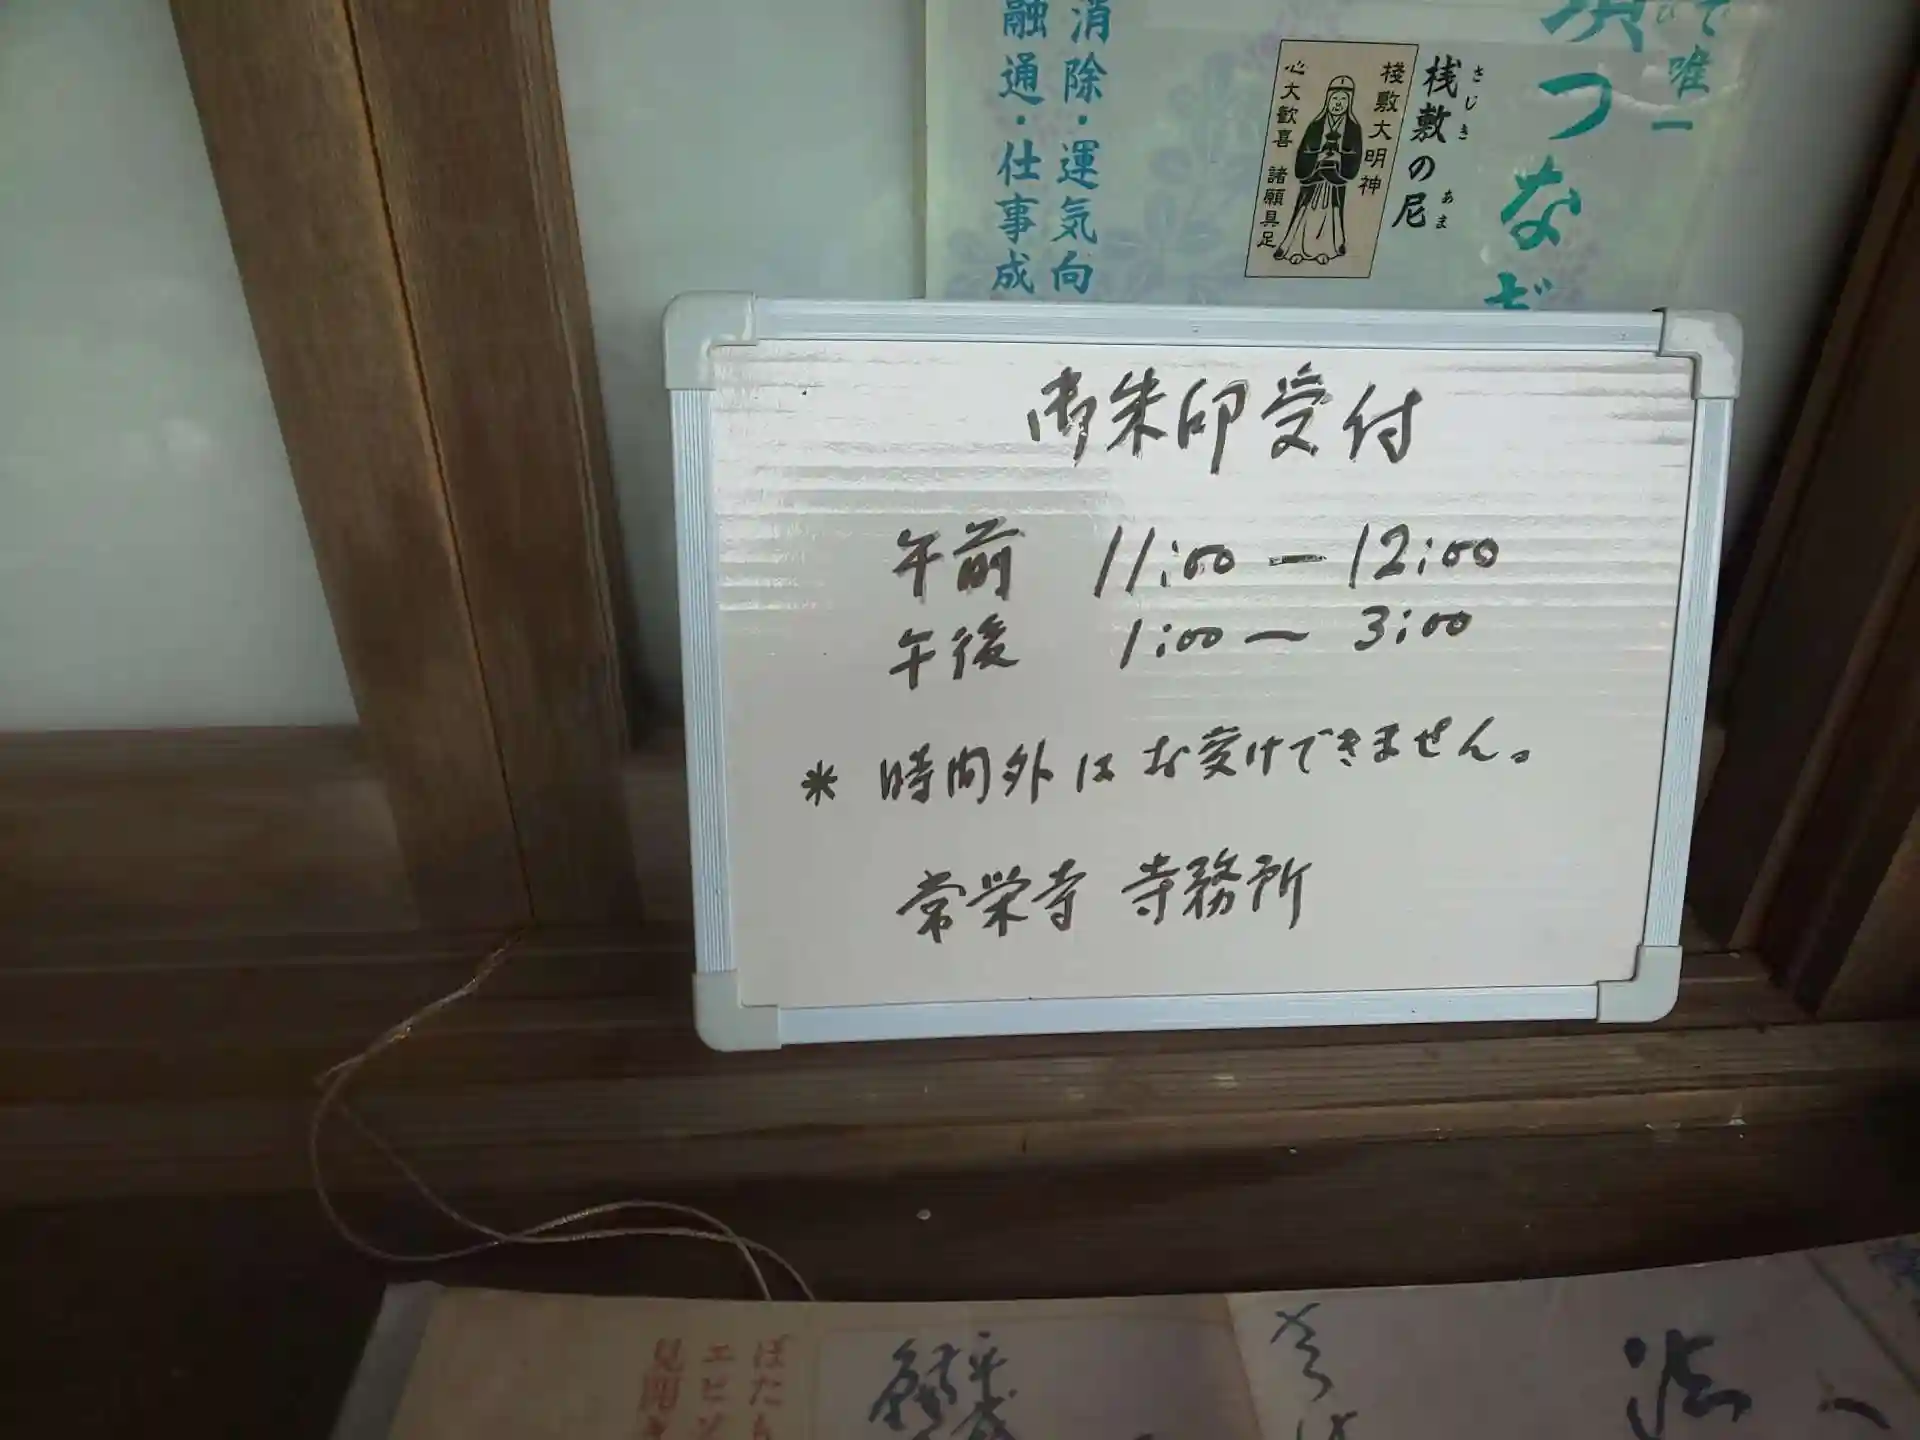 で唯一
つなぎ
桟敷の尼
さじき
あま
棧敷大明神
心大歓喜 諸願具足
消除・運気向
融通・仕事成
御朱印受付
午前 11:00 − 12:00
午後 1:00 〜 3:00
* 時間外はお受けできません。
常栄寺 寺務所
ぼたも
エピソ
見開き